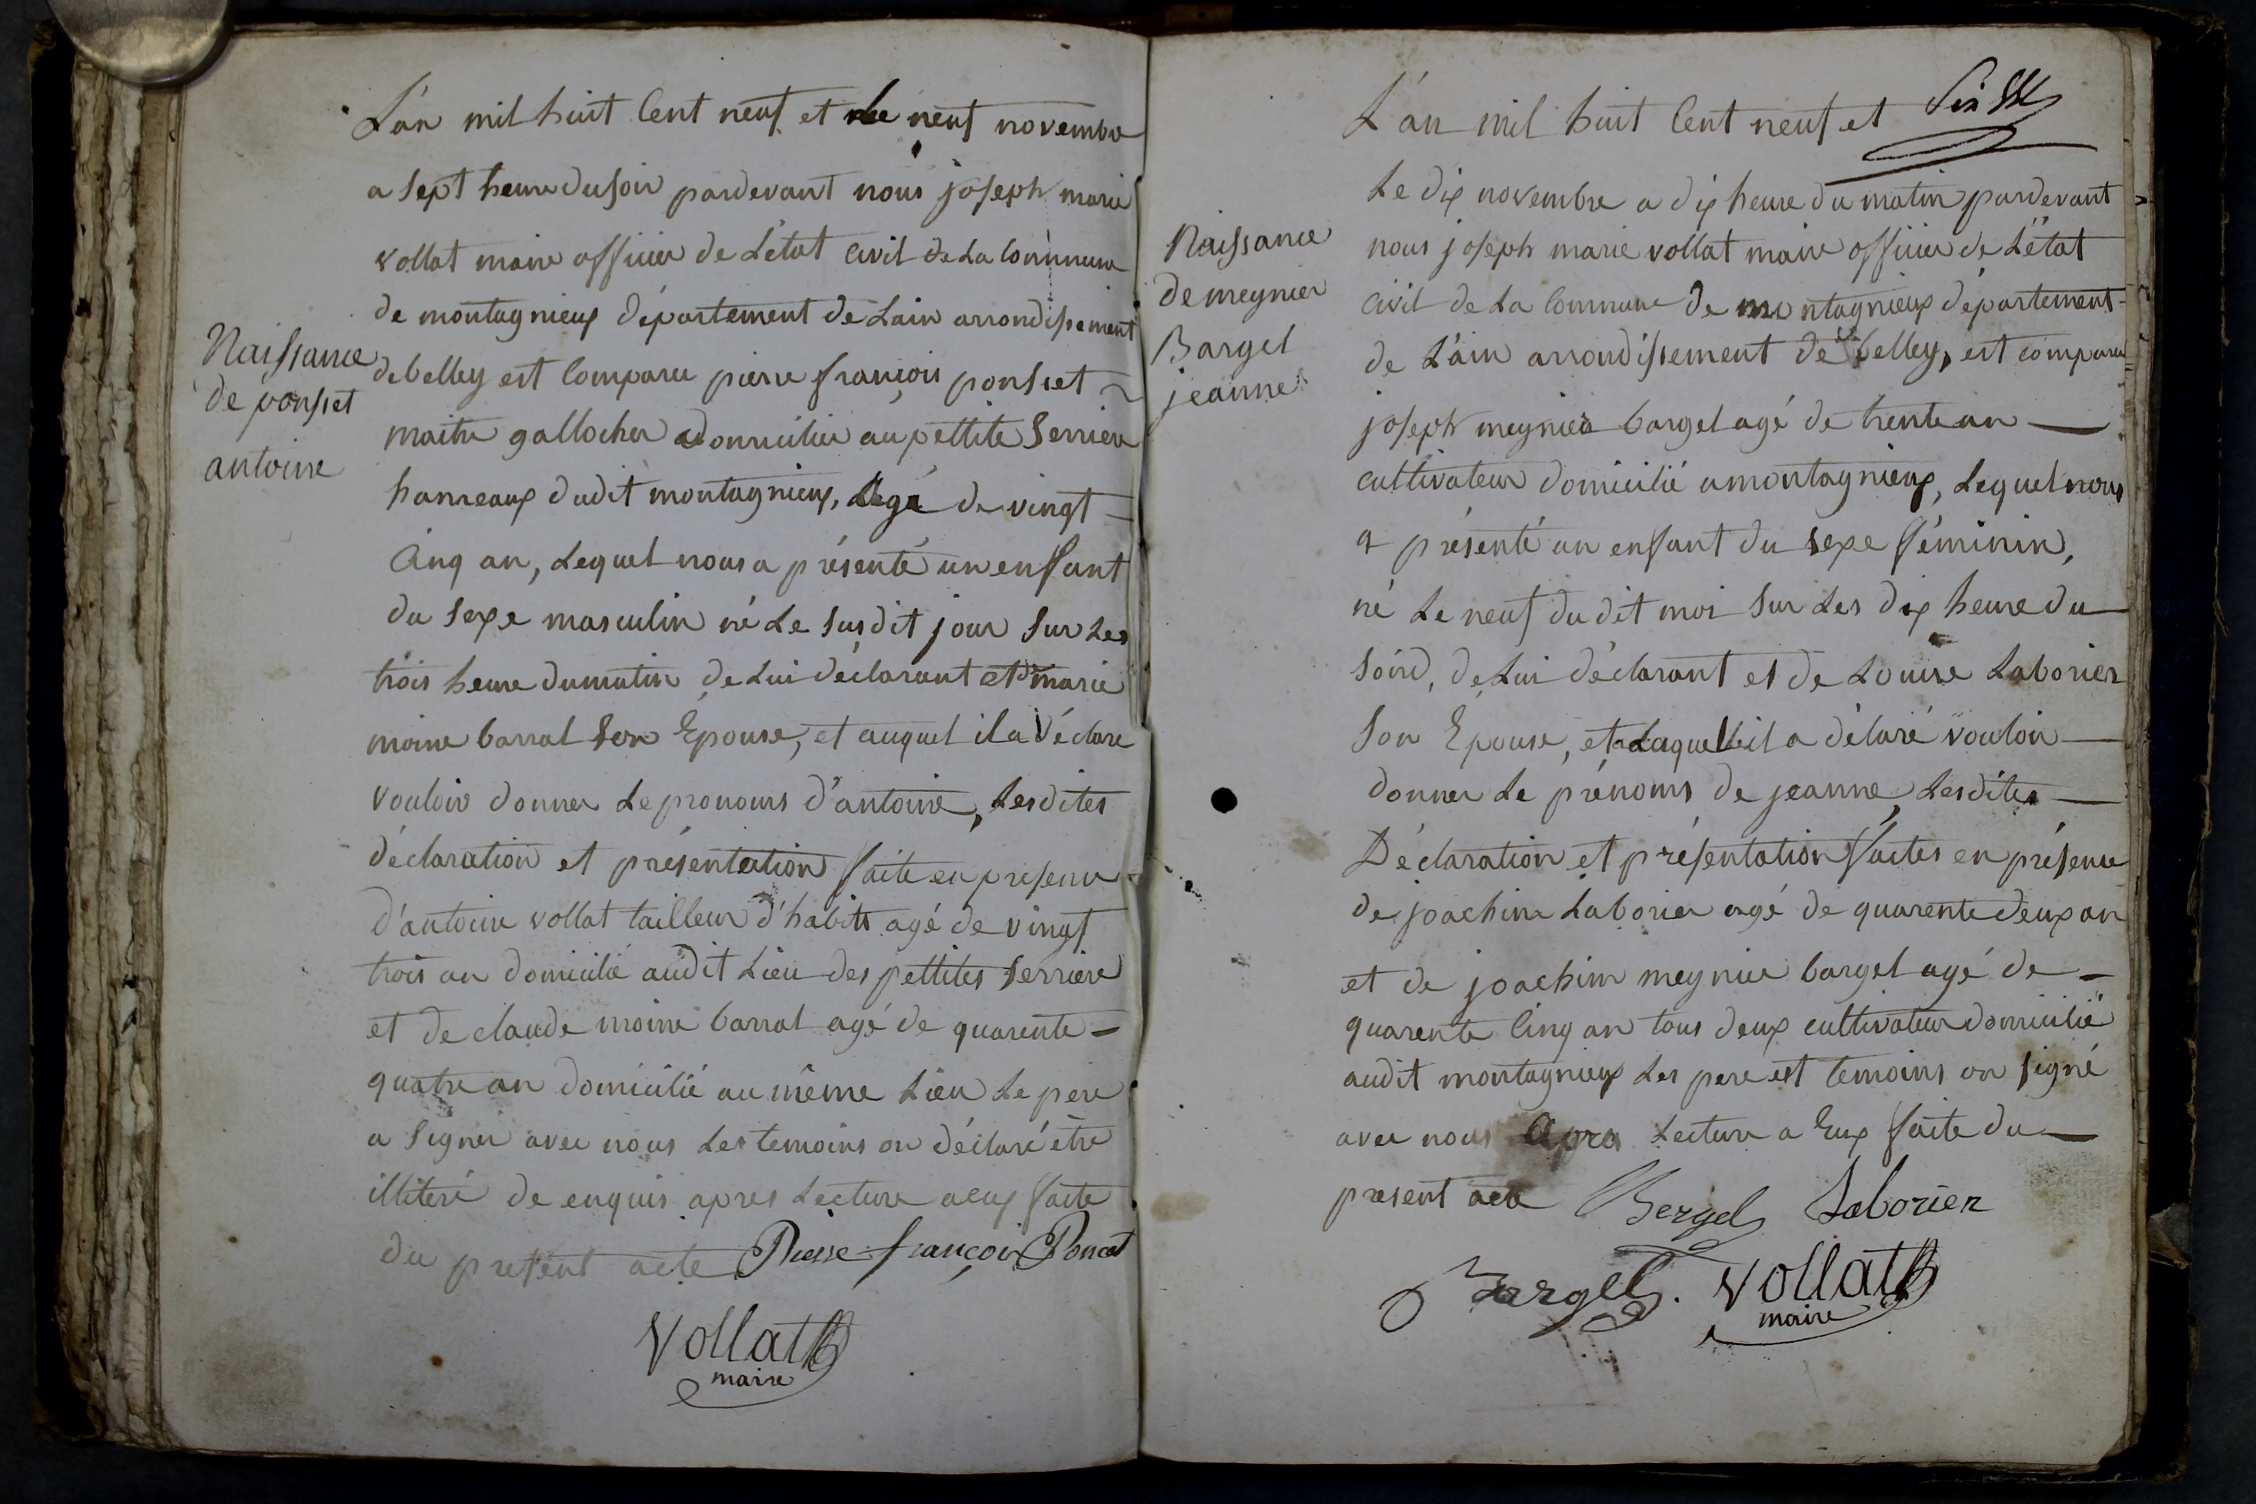 L'an mil huit Cent neuf et le neuf novembre
a sept heure du soir pardevant nous joseph marie
vollat maire officier de L'état civil de La Commune
de montagnieux département de Lain arrondissement
de belley est Comparu pierre françois ponsset
maitre gallocher domicilier au pettite Serriere
hameaux dudit montagnieux, agé de vingt
Cinq an, Lequel nous a présenté un enfant
du sexe masculin né Le susdit jour sur Les
trois heure du matin de Lui déclarant et de marie
moine barral son Epouse, et auquel il a déclaré
vouloir donner Le pronoms d'antoine, Lesdites
déclaration et présentation faite en presence
d'antoine vollat tailleur d'habits agé de vingt
trois an domicilié audit Lieu des pettites serriere
et de claude moine barral agé de quarente
quatre an domicilié au même Lieu Le pere
a signer avec nous Les temoins on déclaré être
illiteré de enquis apres Lecture a eux faite
du présent acte Pierre françois Poncet
vollat
maire
Naissance
de ponsset
antoine
L'an mil huit Cent neuf et
Le dix novembre a dix heure du matin pardevant
nous joseph marie vollat maire officier de L'état
civil de La Commune de montagnieux département
de L'ain arrondissement de belley, est comparu
joseph meynier bargel agé de trente an
cultivateur domicilié a montagnieux, Lequel nous
a présenté un enfant du sexe féminin,
né Le neuf du dit moi sur Les dix heure du
soird, de Lui déclarant et de Louise Laborier
son Epouse, et a Laquelle il a déclaré vouloir
donner Le prénoms de jeanne, Lesdites
Déclaration et présentation faites en présence
de joachim Laborier agé de quarente deux an
et de joachim meynier bargel agé de
quarente Cinq an tous deux cultivateur domicilié
audit montagnieux Les pere et temoins on signé
avec nous apres Lecture a Eux faite du
present acte Bergel Laborier
Bargel. vollat
maire
Naissance
de meynier
Bargel
jeanne